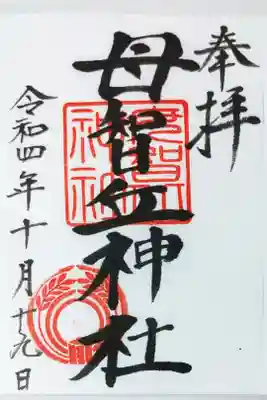 奉拝
母智丘神社
令和四年十月廿九日
母智丘
神社